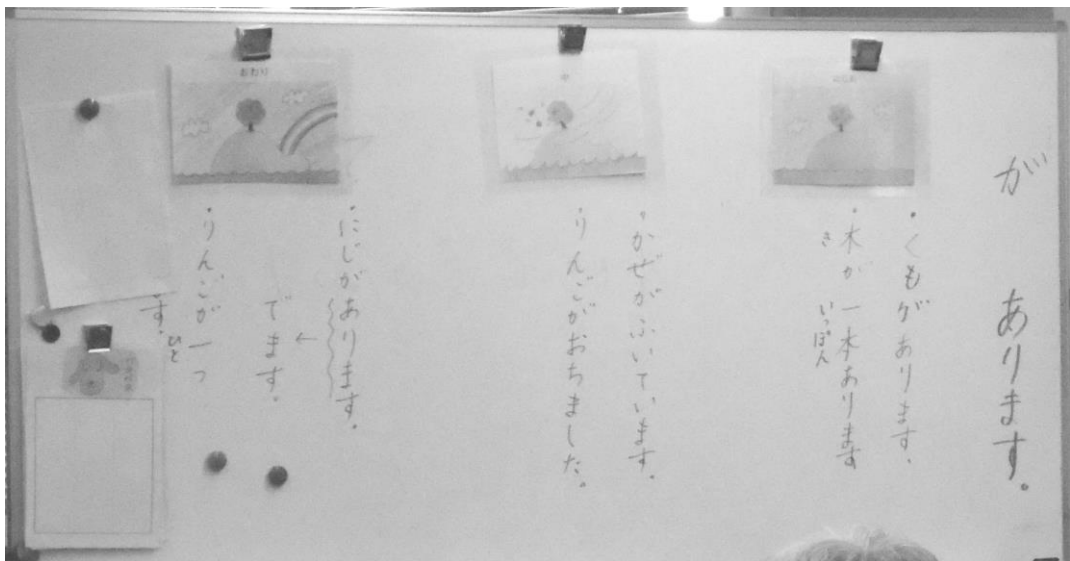 が　あります。
・くもがあります。
・木が一本あります
き　いっぽん
中
・かぜがふいています。
・りんごがおちました。
おわり
・にじがあります。
←
でます。
・りんごが一つ
ひと
す。